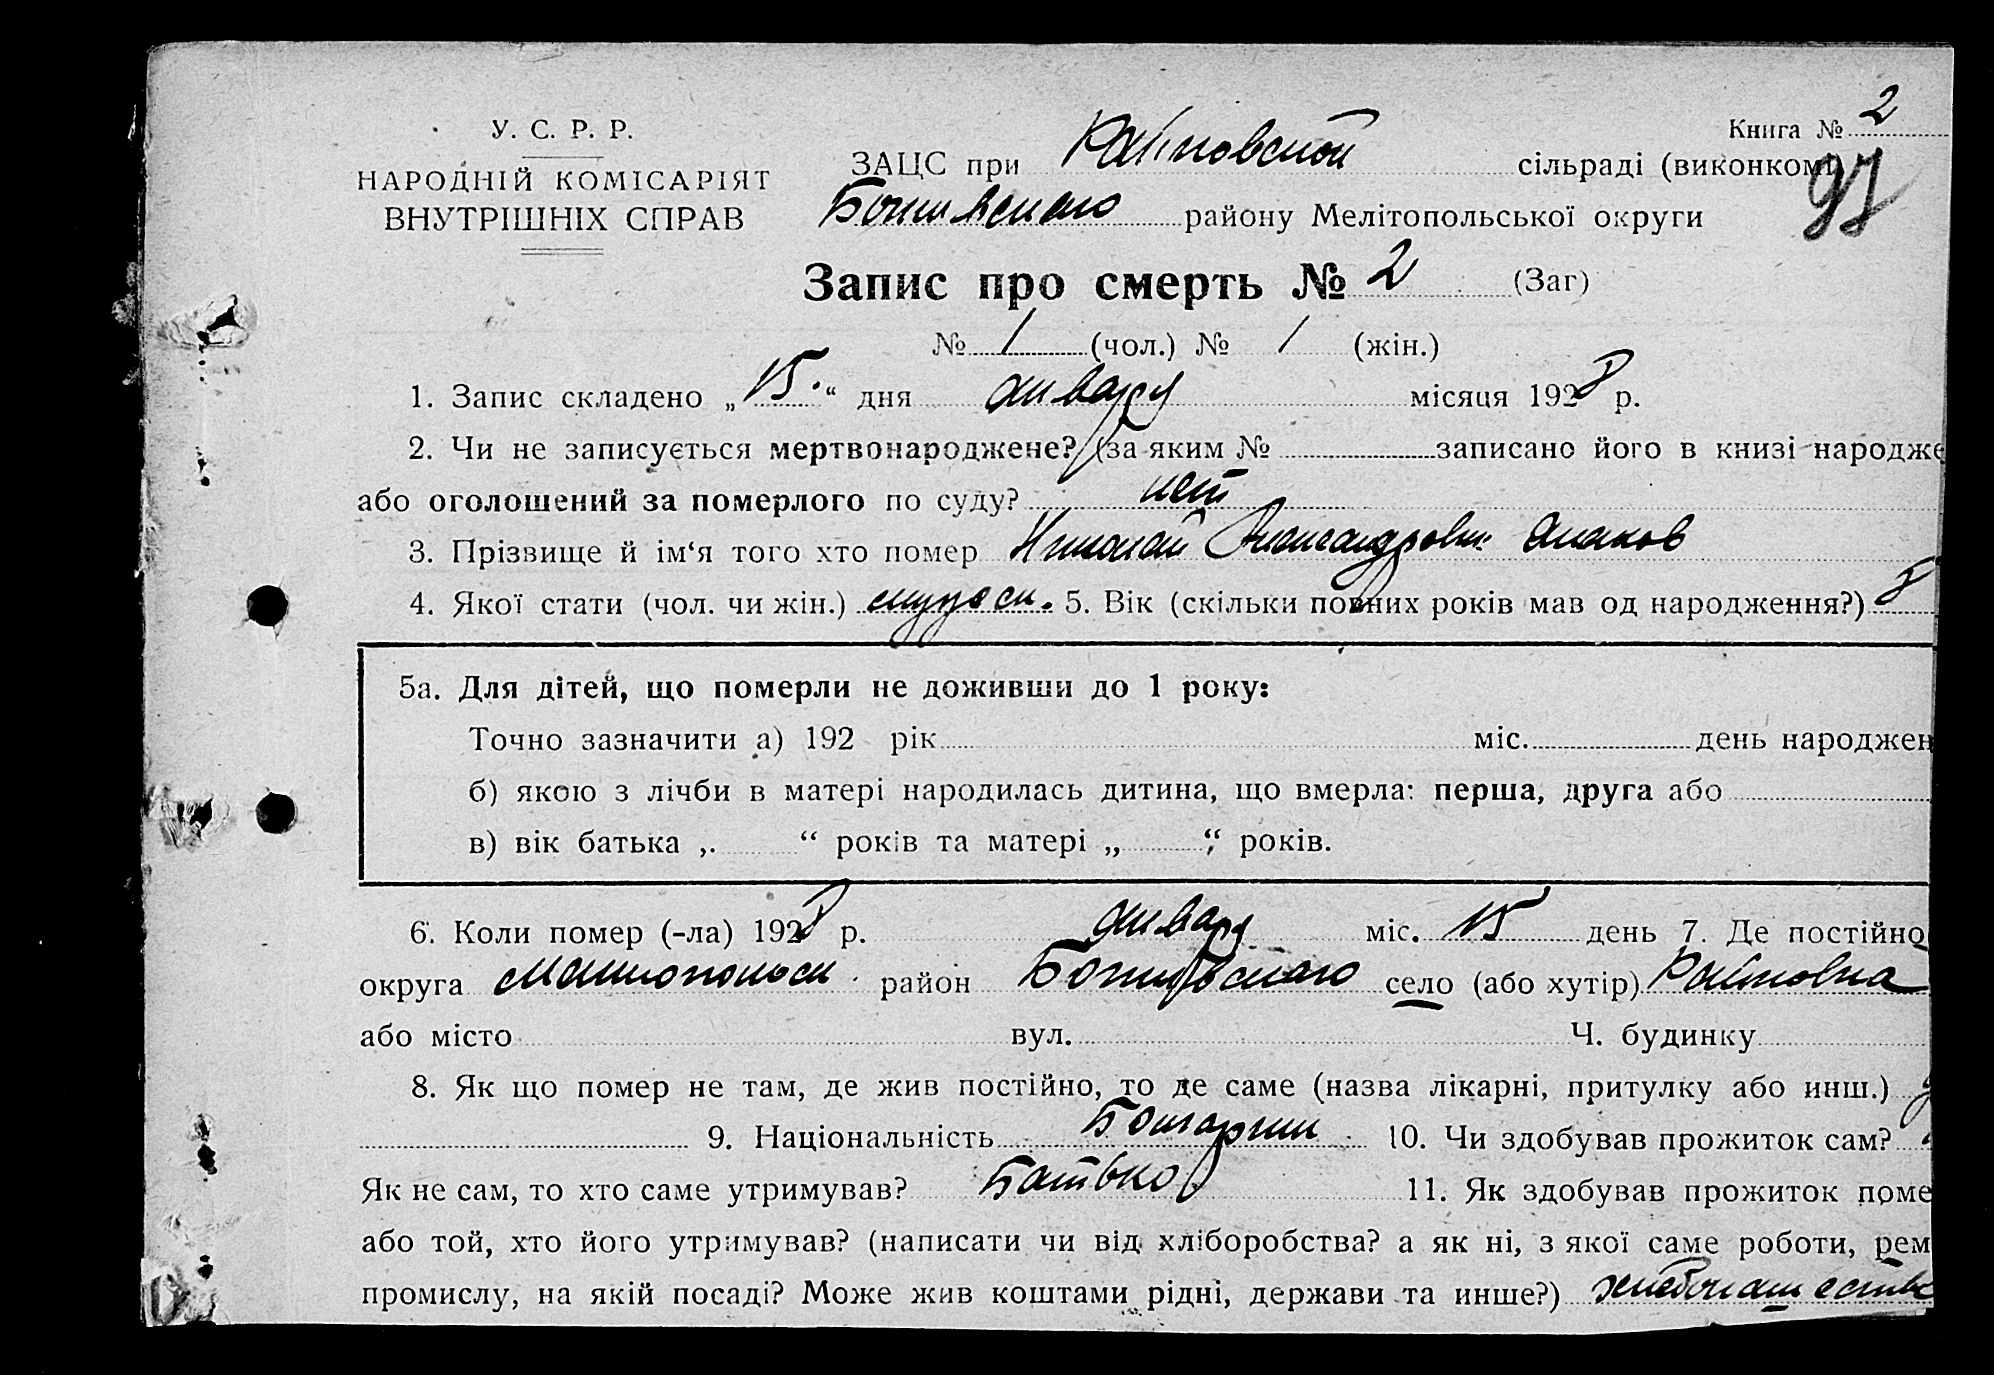 Книга № 2
97
У. С. Р. Р.
НАРОДНІЙ КОМІСАРІЯТ
ВНУТРІШНІХ СПРАВ
ЗАЦС при Райновской сільраді (виконкомі)
району Мелітопольської округи
Запис про смерть № 2 (Заг)
№ 1 (чол.) № / (жін.)
1. Запис складено „15.“ дня января місяця 1928 р.
2. Чи не записується мертвонароджене? (за яким № записано його в книзі народже
або оголошений за померлого по суду? нет
3. Прізвище й ім‘я того хто помер Николай Александрович
4. Якої стати (чол. чи жін.) мужск. 5. Вік (скільки повних років мав од народження?) 8
5а. Для дітей, що померли не доживши до 1 року:
Точно зазначити а) 192 рік міс. день народжен
б) якою з лічби в матері народилась дитина, що вмерла: перша, друга або
в) вік батька „. “ років та матері „ “ років.
6. Коли помер (-ла) 1928 р. января міс. 15 день 7. Де постійно
округа Мелитопольск район село (або хутір) Райновка
або місто вул. Ч. будинку
8. Як що помер не там, де жив постійно, то де саме (назва лікарні, притулку або инш.)
9. Національність Болгарин 10. Чи здобував прожиток сам?
Як не сам, то хто саме утримував? Батько 11. Як здобував прожиток поме
або той, хто його утримував? (написати чи від хліборобства? а як ні, з якої саме роботи, рем
промислу, на якій посаді? Може жив коштами рідні, держави та инше?)